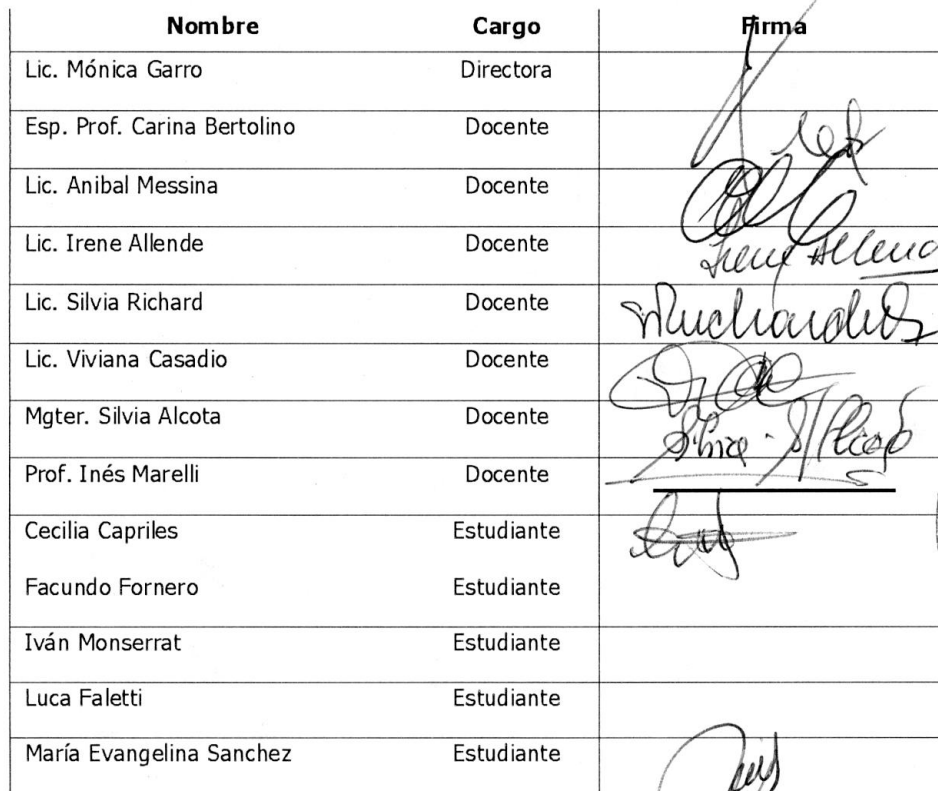 Nombre Cargo Firma
Lic. Mónica Garro Directora
Esp. Prof. Carina Bertolino Docente
Lic. Anibal Messina Docente
Lic. Irene Allende Docente
Lic. Silvia Richard Docente
Lic. Viviana Casadio Docente
Mgter. Silvia Alcota Docente
Prof. Inés Marelli Docente
Cecilia Capriles Estudiante
Facundo Fornero Estudiante
Iván Monserrat Estudiante
Luca Faletti Estudiante
María Evangelina Sanchez Estudiante